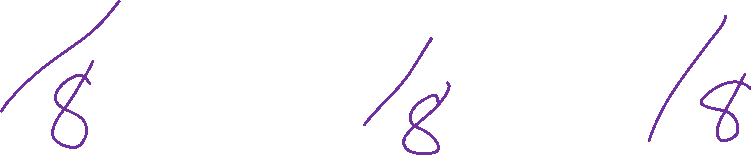 /8 /8 /8